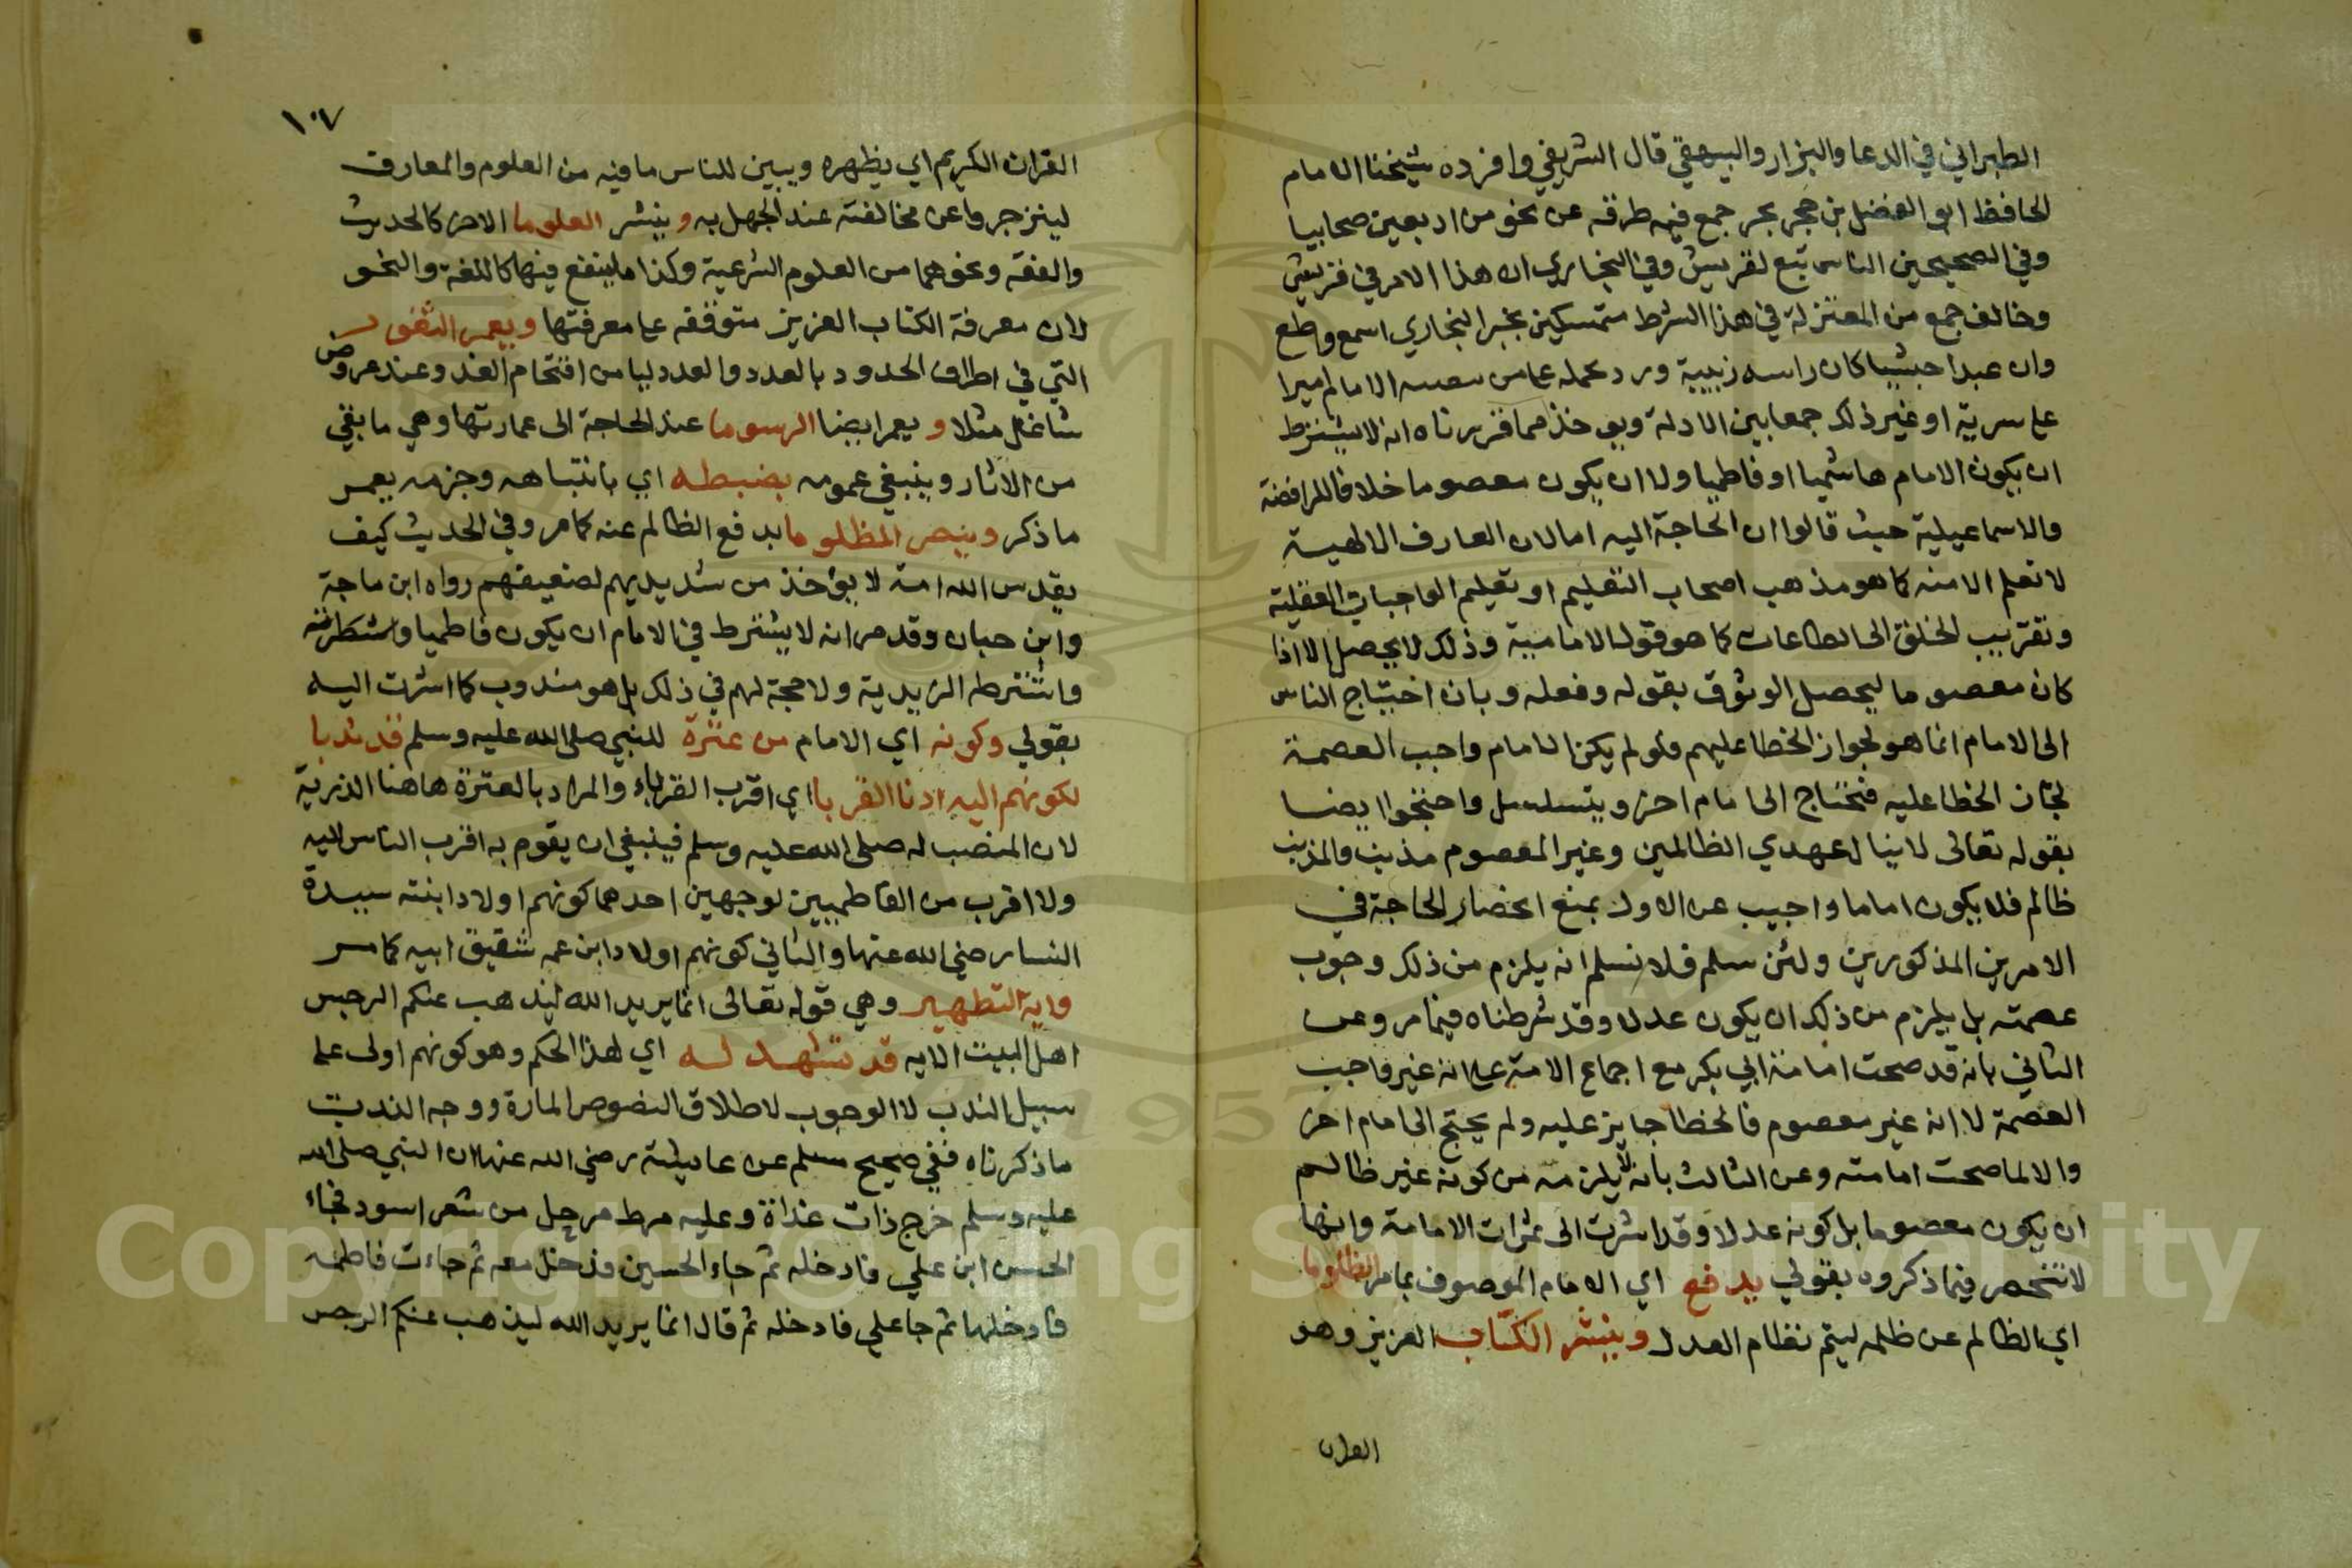 الطبراني في الدعا والبزار والبيهقي قال الشريفي وافرده شيخنا الامام
الحافظ ابو الفضل بن حجر بجزء جمع فيه طرقه عن نحو من اربعين صحابيا
وفي الصحيحين الناس تبع لقريش وفي البخاري ان هذا الامر في قريش
وخالف جمع من المعتزلة في هذا الشرط متمسكين بخبر البخاري اسمع واطع
وان عبدا حبشيا كان راسه زبيبة ورد بحمله على من الامام اميرا
على سرية او غير ذلك جمعا بين الادلة ويوخذ مما قررناه انه لا يشترط
ان يكون الامام هاشميا او فاطميا ولا ان يكون معصوما خلافا للرافضة
والاسماعيلية حيث قالوا ان الحاجة اليه اما لان المعارف الالهية
لا تعلم الا منه كما هو مذهب اصحاب التعليم او تعليم الواجبات العقلية
وتقريب الخلق الى الطاعات كما هو قول الامامية وذلك لا يحصل الا اذا
كان معصوما ليحصل الوثوق بقوله وفعله وبان احتياج الناس
الى الامام انما هو لجواز الخطا عليهم فلو لم يكن الامام واجب العصمة
لجاز الخطا عليه فتحتاج الى امام اخر ويتسلسل واحتجوا ايضا
بقوله تعالى لا ينال عهدي الظالمين وغير المعصوم مذنب والمذنب
ظالم فلا يكون اماما واجيب عن الاول بمنع انحصار الحاجة في
الامرين المذكورين ولئن سلم فلا نسلم انه يلزم من ذلك وجوب
عصمته بل يلزم من ذلك ان يكون عدلا وقد شرطناه فيما مر وعن
الثاني بانه قد صحت امامة ابي بكر مع اجماع الامة على انه غير واجب
العصمة لا انه غير معصوم فالخطا جايز عليه ولم يحتج الى امام اخر
والا لما صحت امامته وعن الثالث بانه لا يلزم من كونه غير ظالم
ان يكون معصوما بل كونه عدلا وقد اشرت الى ثمرات الامامة وانها
لا تنحصر فيما ذكروه بقولي يدفع اي الامام الموصوف بما مر الظلوما
اي الظالم عن ظلمه ليتم نظام العدل وينشر الكتاب العزيز وهو
القران
١٠٧
القران الكريم اي يظهره ويبين للناس ما فيه من العلوم والمعارف
لينزجروا عن مخالفته عند الجهل به وينشر العلوما الاخر كالحديث
والفقه ونحوهما من العلوم الشرعية وكذا ما ينتفع فيها كاللغة والنحو
لان معرفة الكتاب العزيز متوقفه على معرفتها ويعمر الثغور
التي في اطراف الحدود بالعدد والعدد ليامن اقتحام العد وعند عروض
شاغل مثلا و يعمر ايضا الرسوما عند الحاجة الى عمارتها وهي ما بقي
من الاثار وينبغي عمومه بضبطه اي بانتباهه وجزمه يعمر
ما ذكر وينصر المظلوما بدفع الظالم عنه كما مر وفي الحديث كيف
يقدس الله امة لا يؤخذ من شديديهم لضعيفهم رواه ابن ماجة
وابن حبان وقد مر انه لا يشترط في الامام ان يكون فاطميا
واشترطه الزيدية ولا حجة لهم في ذلك بل هو مندوب كما اشرت اليه
بقولي وكونه اي الامام من عترة للنبي صلى الله عليه وسلم قد ندبا
لكونهم اليه ادنا القربا اي اقرب القرباء والمراد بالعترة هاهنا الذرية
لان المنصب له صلى الله عليه وسلم فينبغي ان يقوم به اقرب الناس اليه
ولا اقرب من الفاطميين لوجهين احدهما كونهم اولاد ابنته سيدة
النسا رضي الله عنها والثاني كونهم اولاد ابن عمه شقيق ابيه كما مر
واية التطهير وهي قوله تعالى انما يريد الله ليذهب عنكم الرجس
اهل البيت الايه قد تشهد له اي لهذا الحكم وهو كونهم اولى على
سبيل الندب لا الوجوب لاطلاق النصوص المارة ووجه الندب
ما ذكرناه ففي صحيح مسلم عن عايشة رضي الله عنها ان النبي صلى الله
عليه وسلم خرج ذات غداة وعليه مرط مرحل من شعر اسود فجاء
الحسن ابن علي فادخله ثم جاء الحسين فدخل معه ثم جاءت فاطمه
فادخلها ثم جا علي فادخله ثم قال انما يريد الله ليذهب عنكم الرجس
Copyright © King Saud University
1957